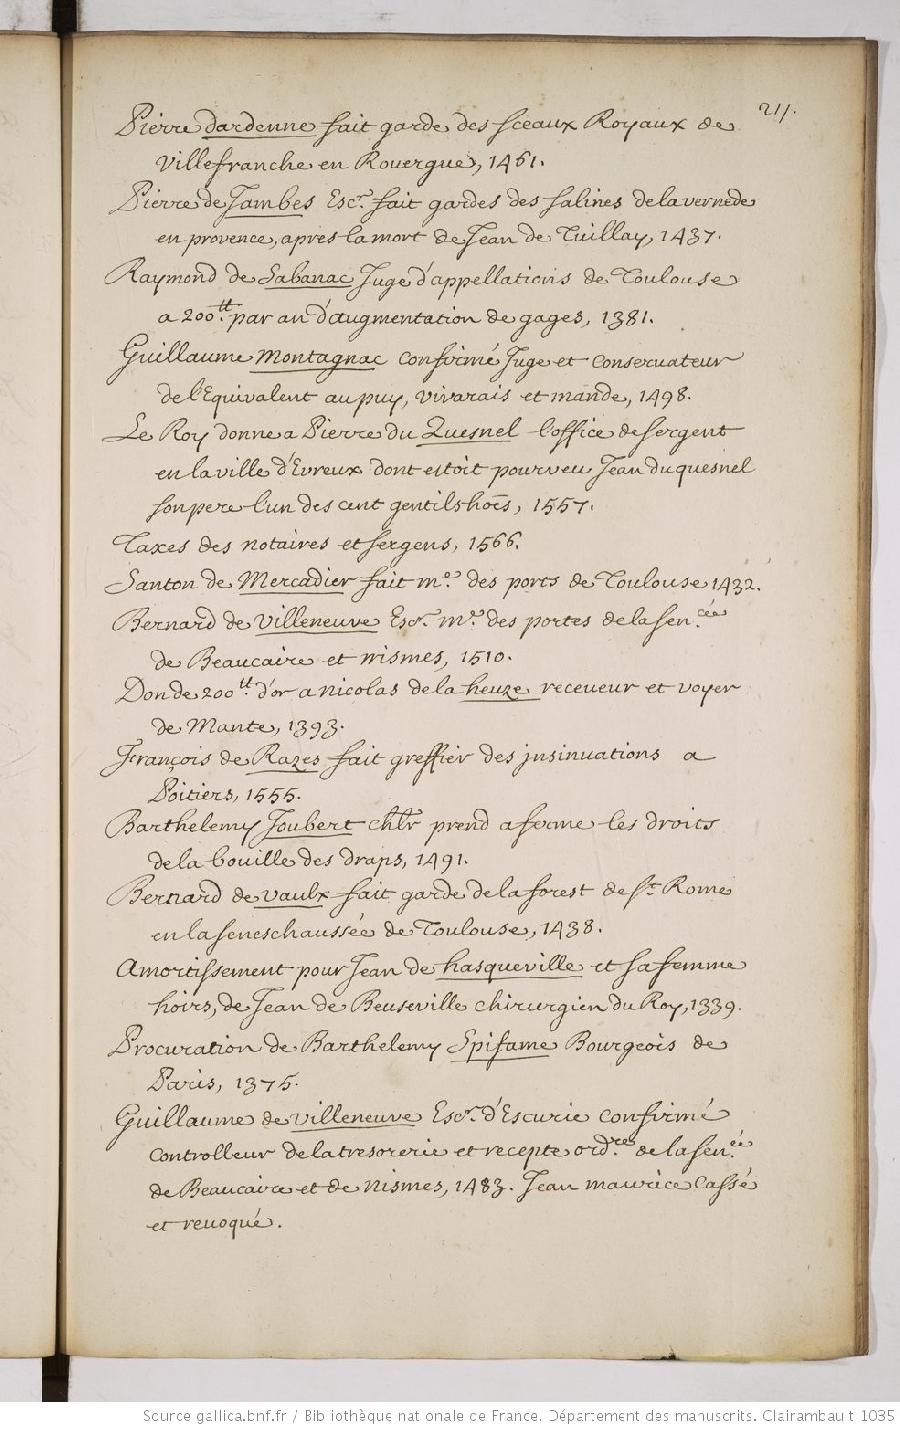 211.
Pierre dardenne fait garde des sceaux Royaux de
Villefranche en Rouergue, 1461.
Pierre de Jambes Escr. fait gardes des salines de la vernede
en provence, apres la mort de Jean de Tuillay, 1437.
Raymond de Sabanac Juge d'appellations de Toulouse
a 200tt. par an d'augmentation de gages, 1381.
Guillaume Montagnac confirmé Juge et conseruateur
de l'Equivalent au puy, vivarais et mande, 1498.
Le Roy donne a Pierre du Quesnel l'office de sergent
en la ville d'Evreux dont estoit pourveu Jean du quesnel
son pere l'un des cent gentilshoes, 1557.
Taxes des notaires et sergens, 1566.
Santon de Mercadier fait me. des ports de Toulouse 1432.
Bernard de Villeneuve Escr. me. des portes de la sen.cée
de Beaucaire et nismes, 1510.
Don de 200tt. d'or a nicolas de la heuze receueur et voyer
de Mante, 1393.
François de Razes fait greffier des jnsinuations a
Poitiers, 1555.
Barthelemy Joubert chlr prend a ferme les droits
de la bouille des draps, 1491.
Bernard de vaulx fait garde de la forest de St. Rome
en la seneschaussée de Toulouse, 1438.
Amortissement pour Jean de hasqueville et sa femme
hoirs, de Jean de Beuseville chirurgien du Roy, 1339.
Procuration de Barthelemy Spifame Bourgeois de
Paris, 1375.
Guillaume de villeneuve Escr. d'Escurie confirmé
controlleur de la tresorerie et recepte ord.re de la sen.ée
de Beaucaire et de nismes, 1483. Jean maurice cassé
et reuoqué.
Source gallica.bnf.fr / Bibliothèque nationale de France. Département des manuscrits. Clairambault 1035